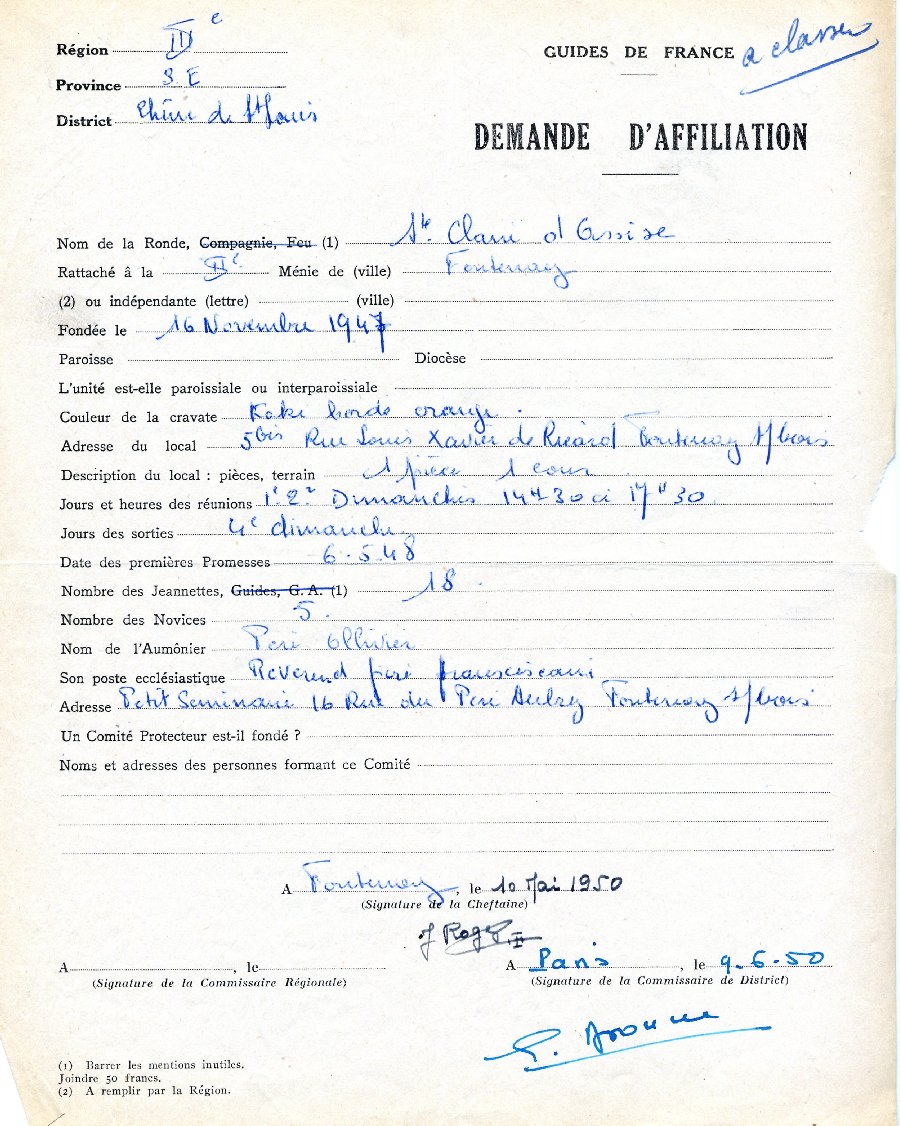 Région III e
GUIDES DE FRANCE a classer
Province S E
District Chêne de St Louis
DEMANDE D'AFFILIATION
Nom de la Ronde, Compagnie, Feu (1) Ste Claire d Assise
Rattaché â la IIe Ménie de (ville) Fontenay
(2) ou indépendante (lettre) (ville)
Fondée le 16 Novembre 1947
Paroisse Diocèse
L'unité est-elle paroissiale ou interparoissiale
Couleur de la cravate Kaki bordé orange.
Adresse du local 5bis Rue Louis Xavier de Ricard Fontenay s/bois
Description du local : pièces, terrain 1 pièce 1 cour
Jours et heures des réunions 1e 2e Dimanches 14H30 à 17H30
Jours des sorties 4e dimanche
Date des premières Promesses 6.5.48
Nombre des Jeannettes, Guides, G. A. (1) 18.
Nombre des Novices 5.
Nom de l'Aumônier Père Ollivier
Son poste ecclésiastique Révérend père franciscain
Adresse Petit Seminaire 16 Rue du Père Aubry Fontenay s/bois
Un Comité Protecteur est-il fondé ?
Noms et adresses des personnes formant ce Comité
A Fontenay, le 10 Mai 1950
(Signature de la Cheftaine)
A , le
A Paris , le 9.6.50
(Signature de la Commissaire Régionale)
(Signature de la Commissaire de District)
(1) Barrer les mentions inutiles.
Joindre 50 francs.
(2) A remplir par la Région.